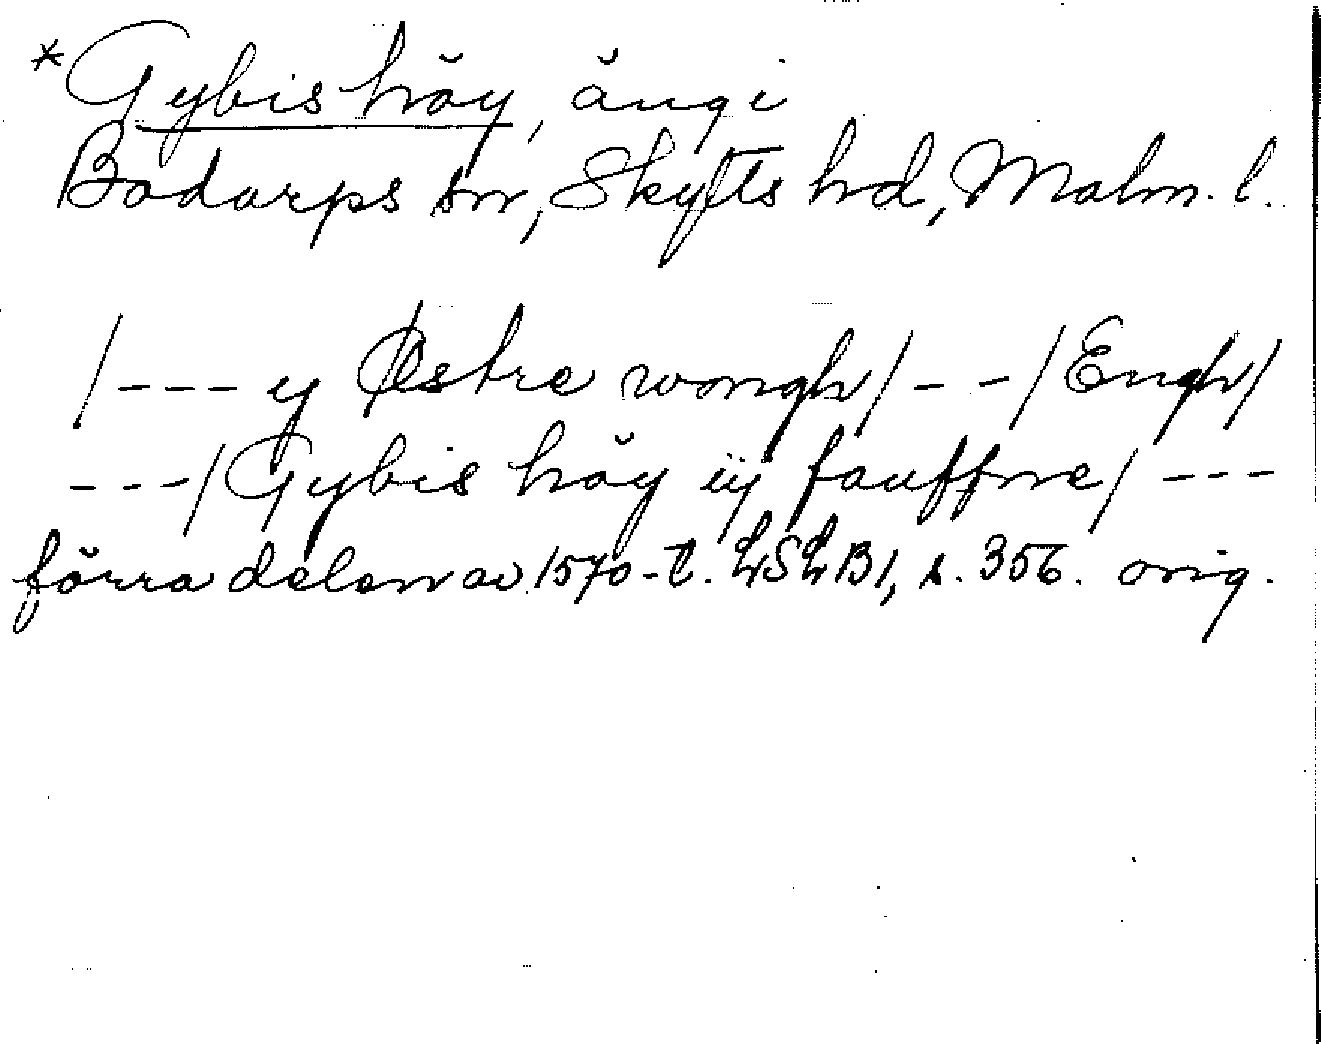 *Gybis höy, äng i
Bodarps sn, Skytts hd, Malm. l.
/--- y Østre wongh/ - - /Engh/
---/Gybis höy iij fauffne/ ---
förra delen av 1570-t. LSLB1, s. 356. orig.